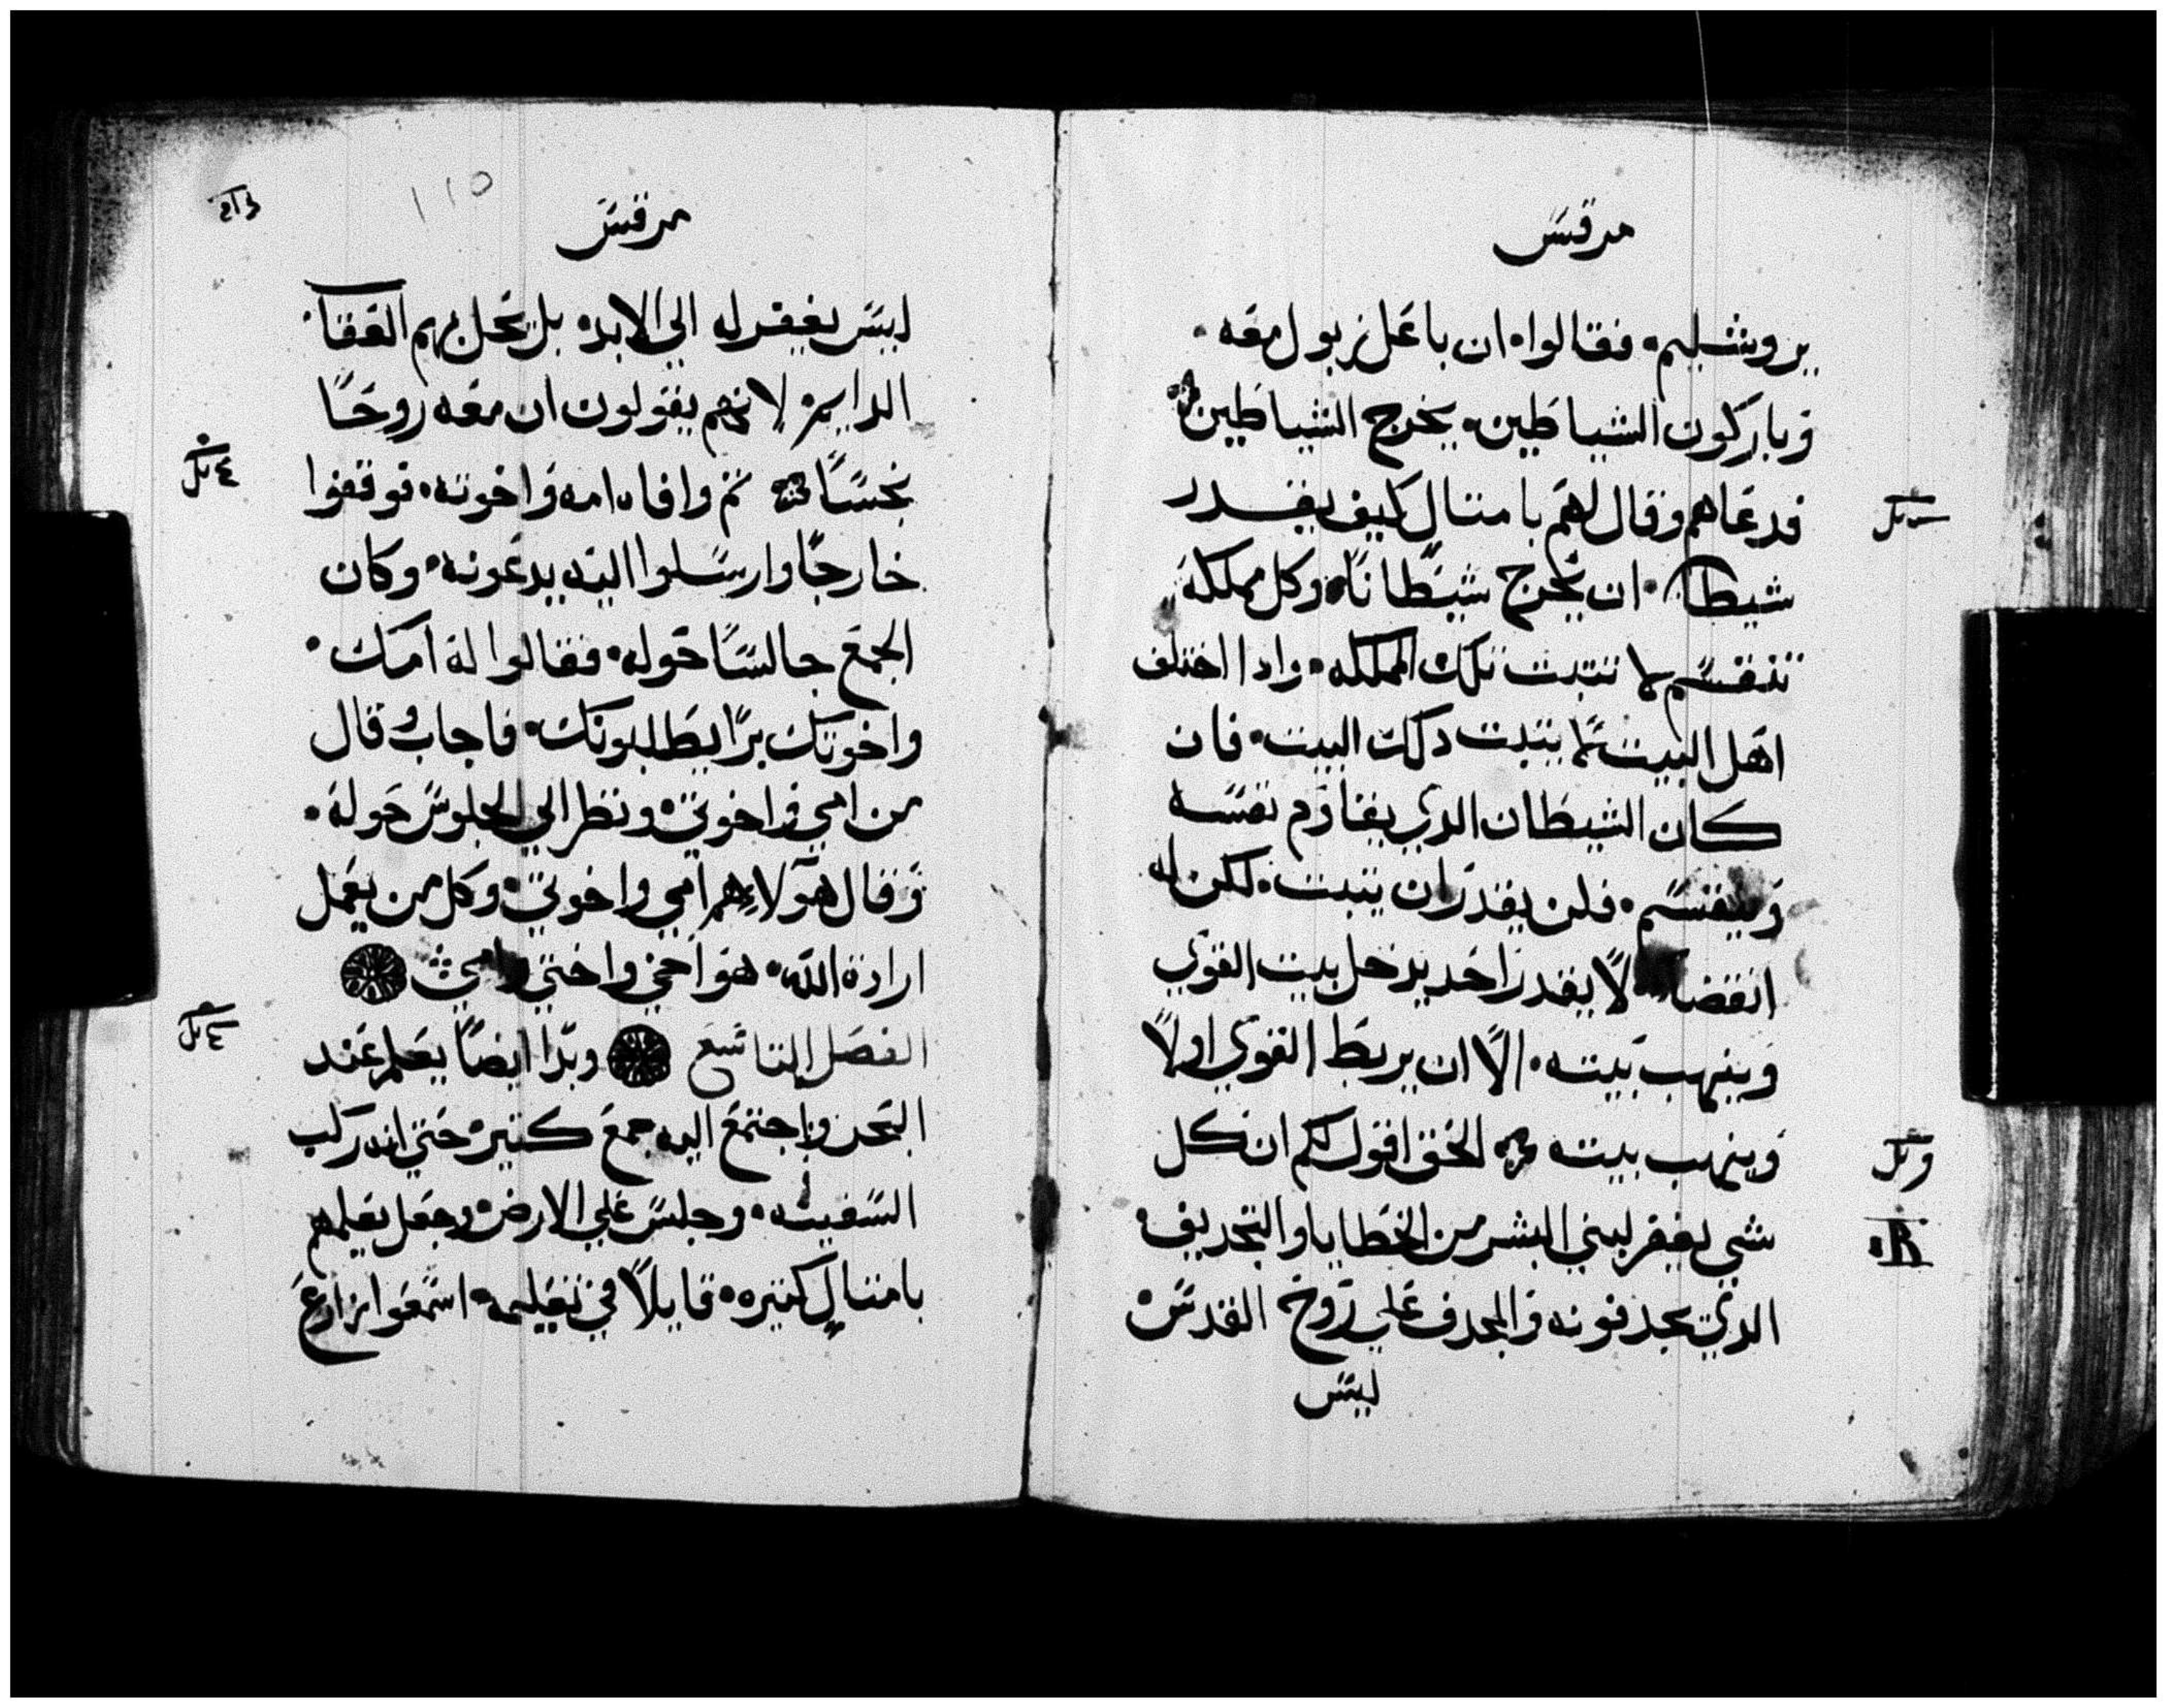 مرقس
يروشليم. فقالوا. ان باعل زبول معه.
وباركون الشياطين. يخرج الشياطين
فدعاهم وقال لهم بامتال كيف يقدر
شيطان. ان يخرج شيطانًا. وكل مملكة
تنقسم لا تتبت تلك المملكه. وادا اختلف
اهل البيت لا يتبت دلك البيت. فان
كان الشيطان الدي يقاوم نفسه
وينقسم. فلن يقدر ان يتبت. لكن له
انقضا لا يقدر احد يدخل بيت القوي
وينهب بيته. الا ان يربط القوي اولاً
وينهب بيته الحق اقول لكم ان كل
شي يغفر لبني البشر من الخطايا والتجديف.
الدي يجدفونه والمجدف علي روح القدس
ليس
١١٥
مرقس
ليس يغفر له الي الابد. بل تحل بهم العقا.
الدايمة لانهم يقولون ان معه روحًا
نجسًا تم وافاه امه واخوته. فوقفوا
خارجًا وارسلوا اليه يدعونه. وكان
الجمع جالسًا حوله. فقالوا له امك.
واخوتك برًا يطلبونك. فاجاب وقال
من امي واخوتي. ونظر الي الجلوس حوله.
وقال هولاء هم امي واخوتي. وكل من يعمل
ارادة الله. هو اخي واختي وامي
الفصل التاسع وبدا ايضًا يعلم عند
البحر واجتمع اليه جمع كتير. حتي انه ركب
السفينه. وجلس علي الارض. وجعل يعلمهم
بامتال كتيره. قايلاً في تعليمه. اسمعوا زارع